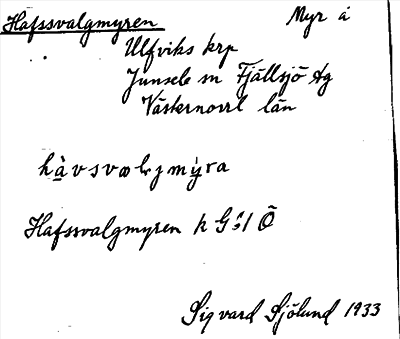 Hafssvalgmyren Myr å
Ulfviks krp
Junsele sn Fjällsjö tg
Västernorrl län
Hafssvalgmyren k G:s1 Ö
Sigvard Sjölund 1933